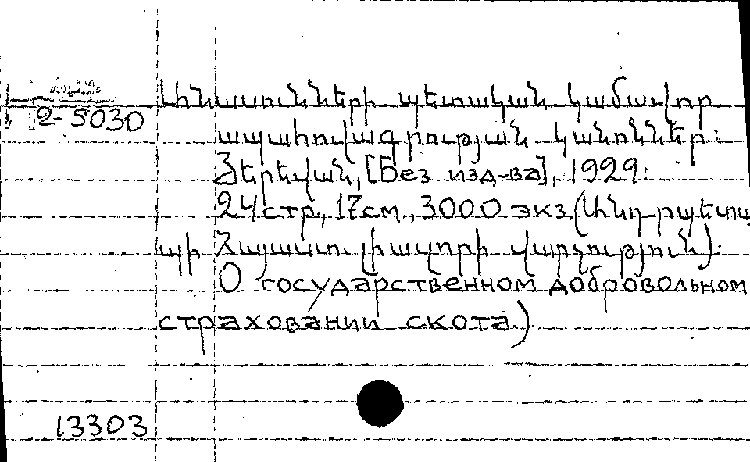 Անասունների պետական կամավոր
2-5030
ապահովագրության կանոններ:
Յերեվան, [Без изд-ва], 1929:
24 стр., 17 см., 3000 экз. (Անդրպետա
պի Հայաստ. լիազորի վարչություն):
О государственном добровольном
страховании скота.)
13303